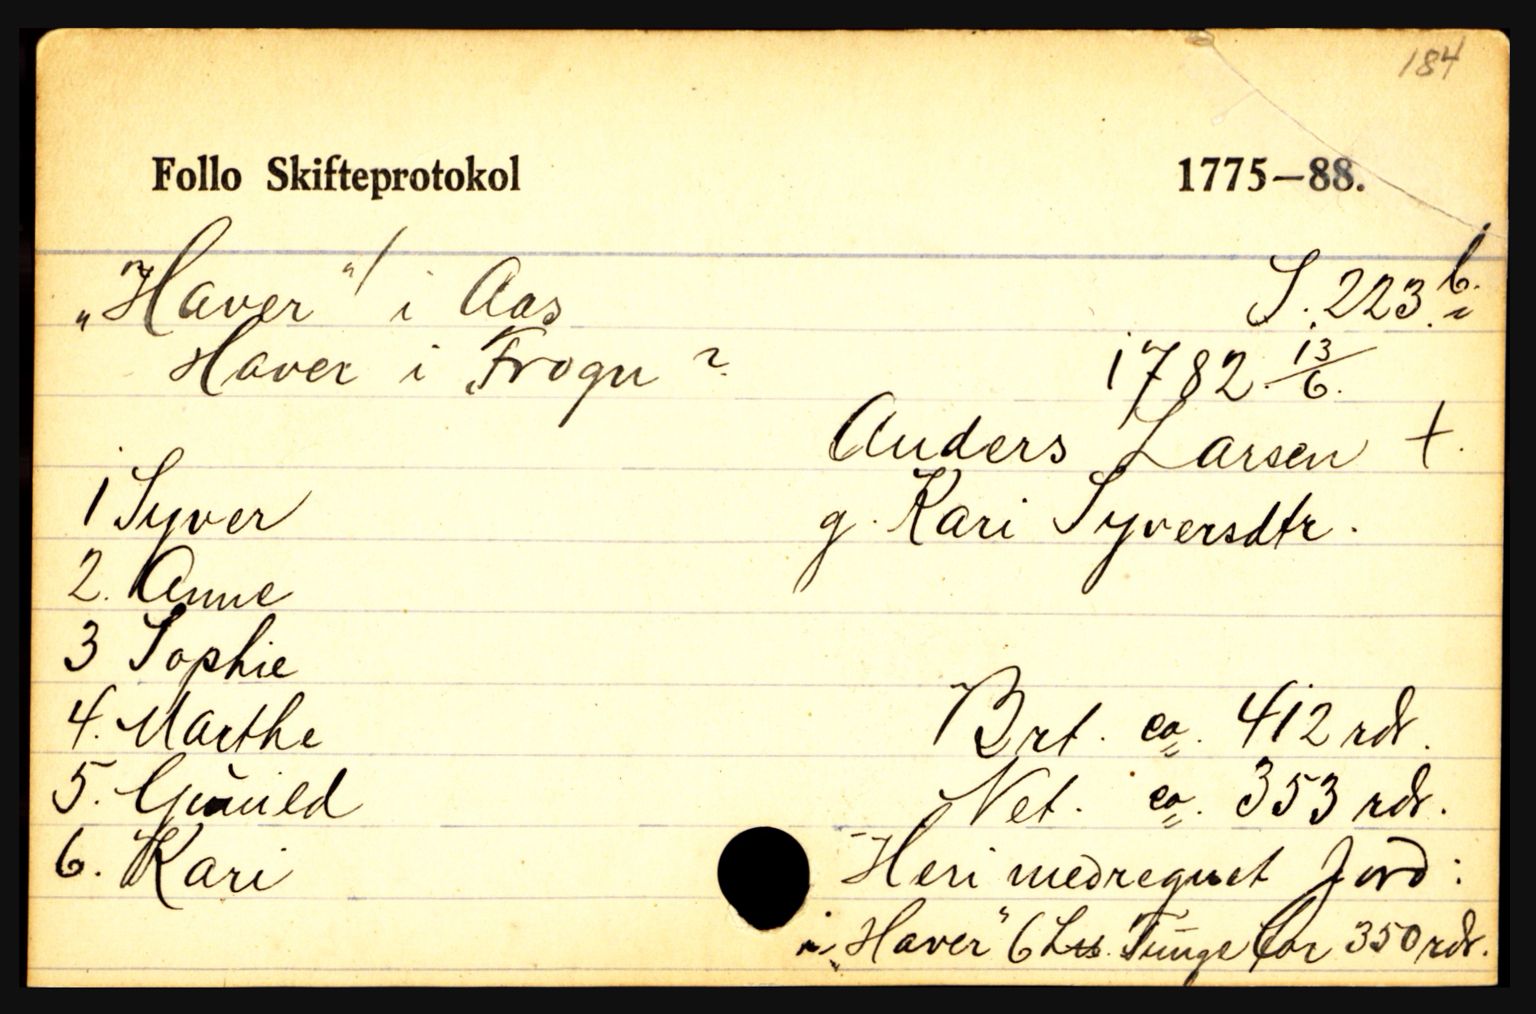 184
Follo Skifteprotokol 1775–88.
„Haver"! i Aas S. 223 b.
Haver i Frogn ? 1782 13/6.
Anders Larsen +.
1 Syver g. Kari Syversdtr.
2. Anne
3 Sophie
4. Marthe Brt. ca. 412 rdr.
5. Gunild Net. ca. 353 rdr.
6. Kari Heri medregnet Jord:
i „Haver" 6 Ltt. Tunge for 350 rdr.